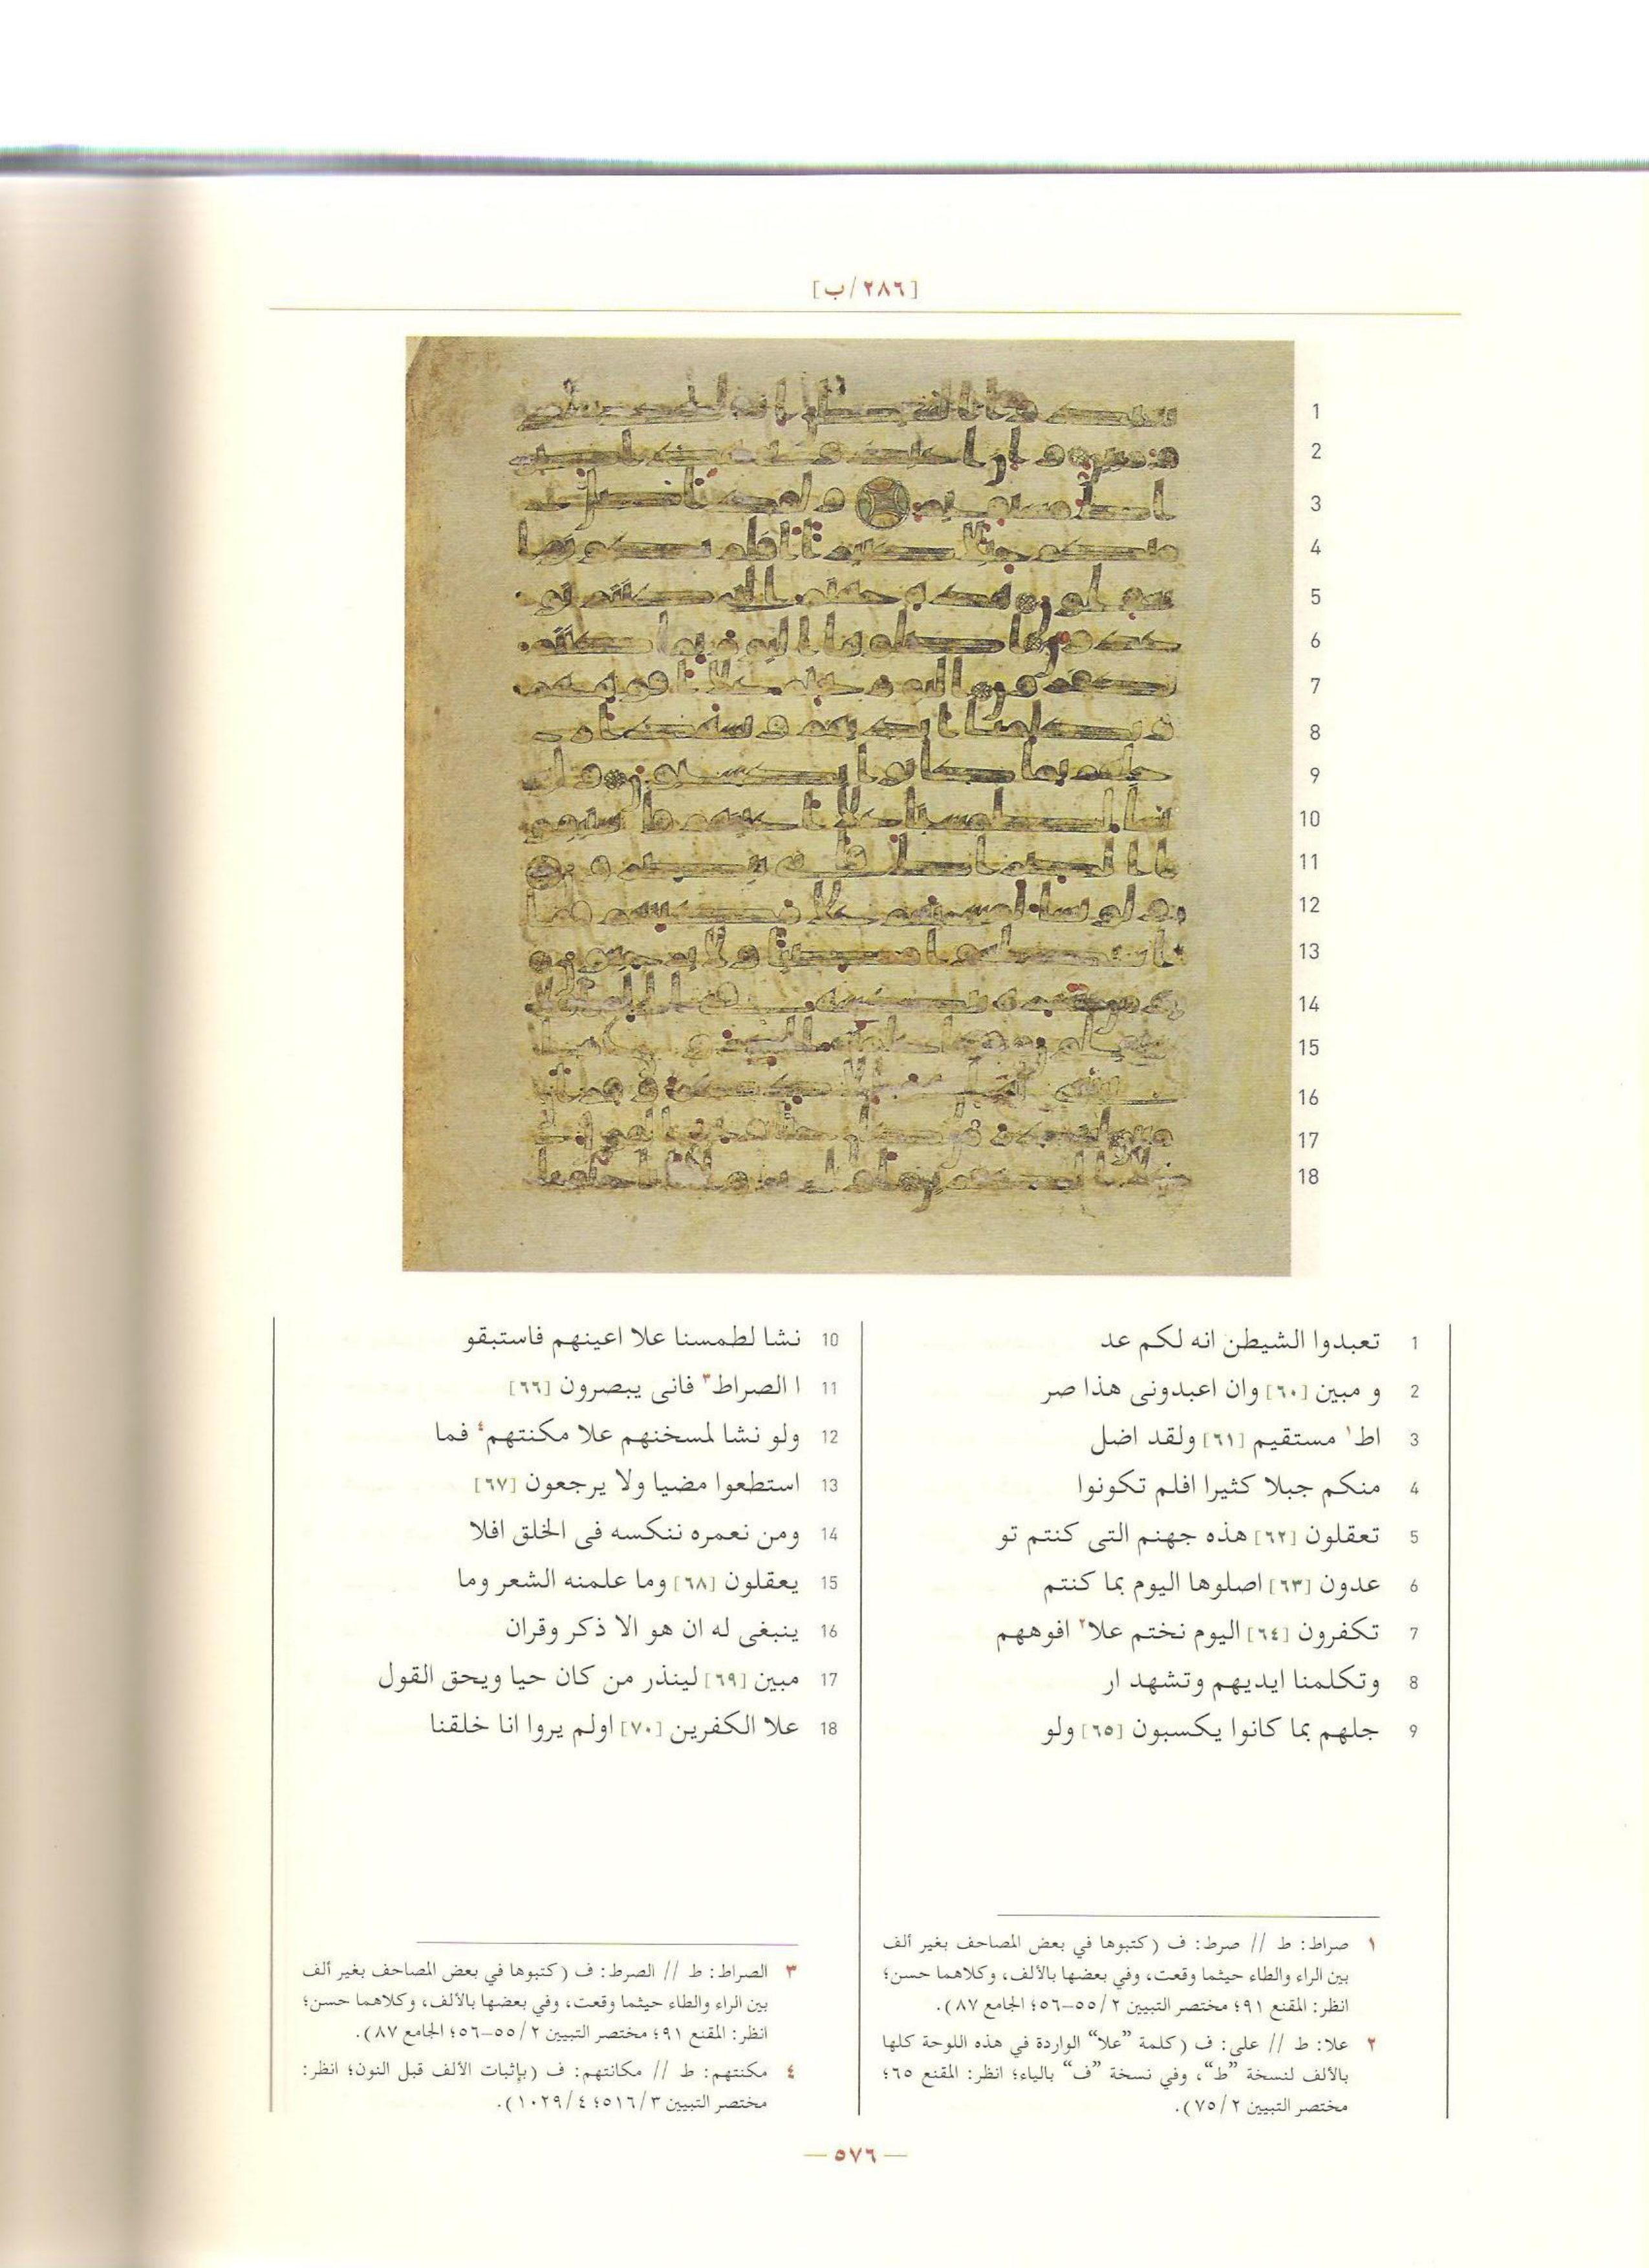 [٢٨٦/ب]
1 تعبدوا الشيطن انه لكم عد
2 و مبين [٦٠] وان اعبدونى هذا صر
3 اط١ مستقيم [٦١] ولقد اضل
4 منكم جبلا كثيرا افلم تكونوا
5 تعقلون [٦٢] هذه جهنم التى كنتم تو
6 عدون [٦٣] اصلوها اليوم بما كنتم
7 تكفرون [٦٤] اليوم نختم علا٢ افوههم
8 وتكلمنا ايديهم وتشهد ار
9 جلهم بما كانوا يكسبون [٦٥] ولو
10 نشا لطمسنا علا اعينهم فاستبقو
11 ا الصراط٣ فانى يبصرون [٦٦]
12 ولو نشا لمسخنهم علا مكنتهم٤ فما
13 استطعوا مضيا ولا يرجعون [٦٧]
14 ومن نعمره ننكسه فى الخلق افلا
15 يعقلون [٦٨] وما علمنه الشعر وما
16 ينبغى له ان هو الا ذكر وقران
17 مبين [٦٩] لينذر من كان حيا ويحق القول
18 علا الكفرين [٧٠] اولم يروا انا خلقنا
١ صراط: ط // صرط: ف (كتبوها في بعض المصاحف بغير ألف
بين الراء والطاء حيثما وقعت، وفي بعضها بالألف، وكلاهما حسن؛
انظر: المقنع ٩١؛ مختصر التبيين ٢/ ٥٥-٥٦؛ الجامع ٨٧).
٢ علا: ط // على: ف (كلمة "علا" الواردة في هذه اللوحة كلها
بالألف لنسخة "ط"، وفي نسخة "ف" بالياء؛ انظر: المقنع ٦٥؛
مختصر التبيين ٢/ ٧٥).
٣ الصراط: ط // الصرط: ف (كتبوها في بعض المصاحف بغير ألف
بين الراء والطاء حيثما وقعت، وفي بعضها بالألف، وكلاهما حسن؛
انظر: المقنع ٩١؛ مختصر التبيين ٢/ ٥٥-٥٦؛ الجامع ٨٧).
٤ مكنتهم: ط // مكانتهم: ف (بإثبات الألف قبل النون؛ انظر:
مختصر التبيين ٣/ ٥١٦؛ ٤/ ١٠٢٩).
— ٥٧٦ —